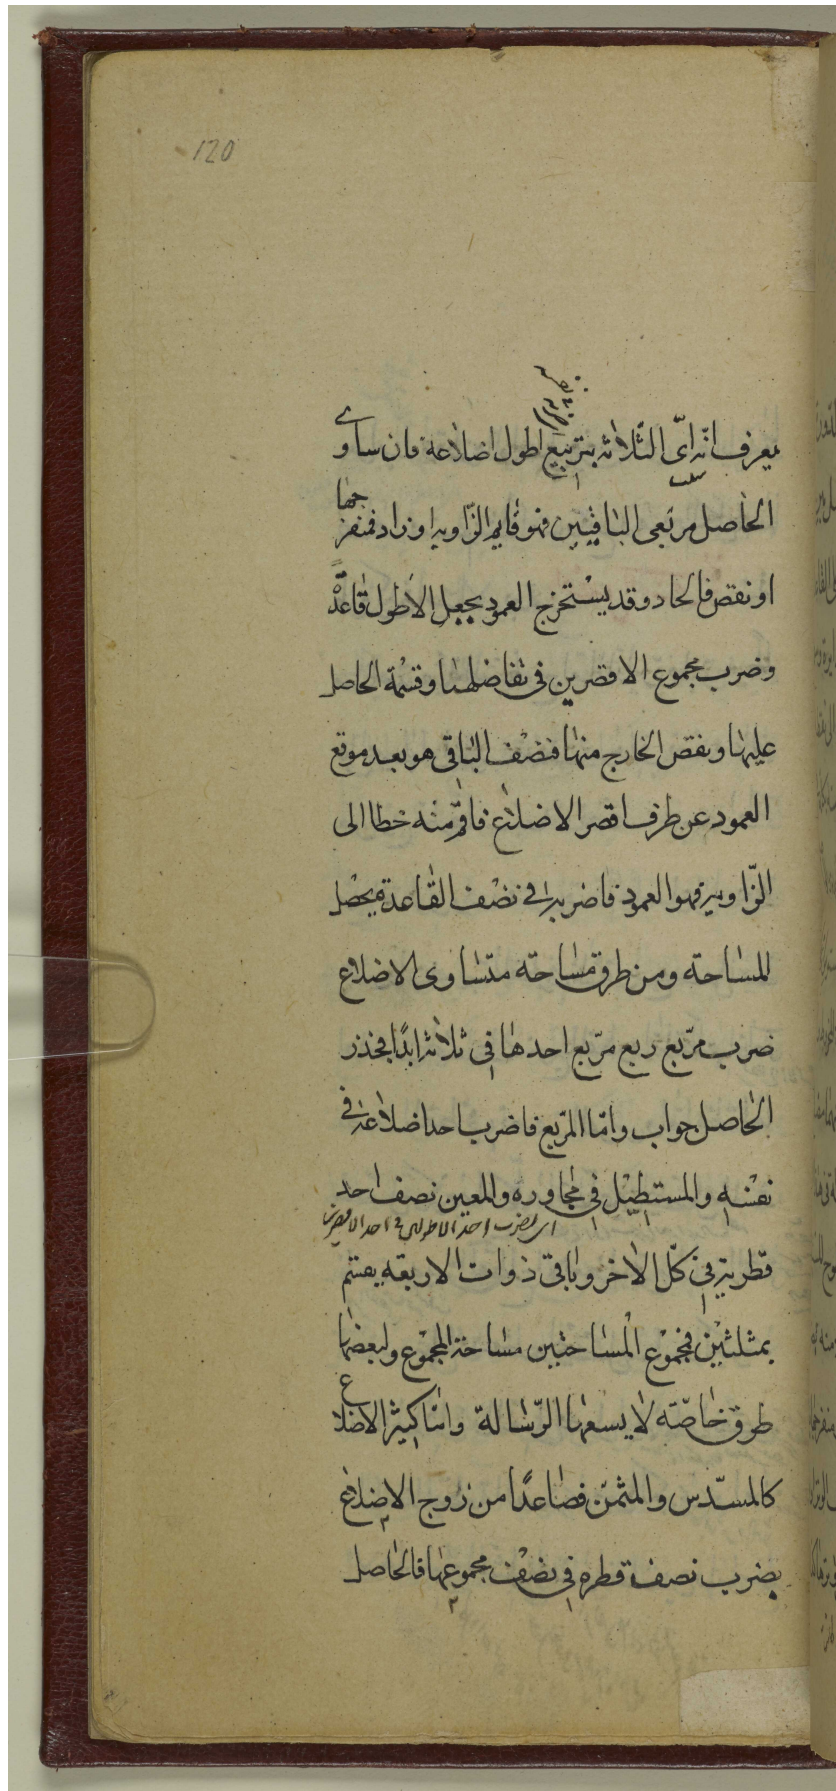 120
يعرف انه اى الثلاثه بتربيع اطول اضلاعه فان ساوى
الحاصل مربعى الباقيين فهو قايم الزاويه او زاد فمنفرجها
او نقص فالحاد وقد يستخرج العمود بجعل الاطول قاعدة
وضرب مجموع الاقصرين فى تفاضلهما وقسمة الحاصل
عليها ونقص الخارج منها فنصف الباقى هو بعد موقع
العمود عن طرف اقصر الاضلاع فاقم منه خطا الى
الزاويه فهو العمود فاضربه فى نصف القاعدة يحصل
المساحة ومن طرق مساحته متساوى الاضلاع
ضرب مربع ربع مربع احدها فى ثلاثه ابدًا فجذر
الحاصل جواب وامّا المربع فاضرب احد اضلاعه فى
نفسه والمستطيل فى مجاوره والمعين نصف احد
اى يضرب احد الاطولين فى احد الاقصرين
قطريه فى كل الاخر وباقى ذوات الاربعه يقسم
بمثلثين فمجموع المساحتين مساحة المجموع ولبعضها
طرق خاصّه لا يسعها الرّسالة وامّا كثير الاضلاع
كالمسدّس والمثمن فصاعدًا من زوج الاضلاع
يضرب نصف قطره فى نصف مجموعها فالحاصل